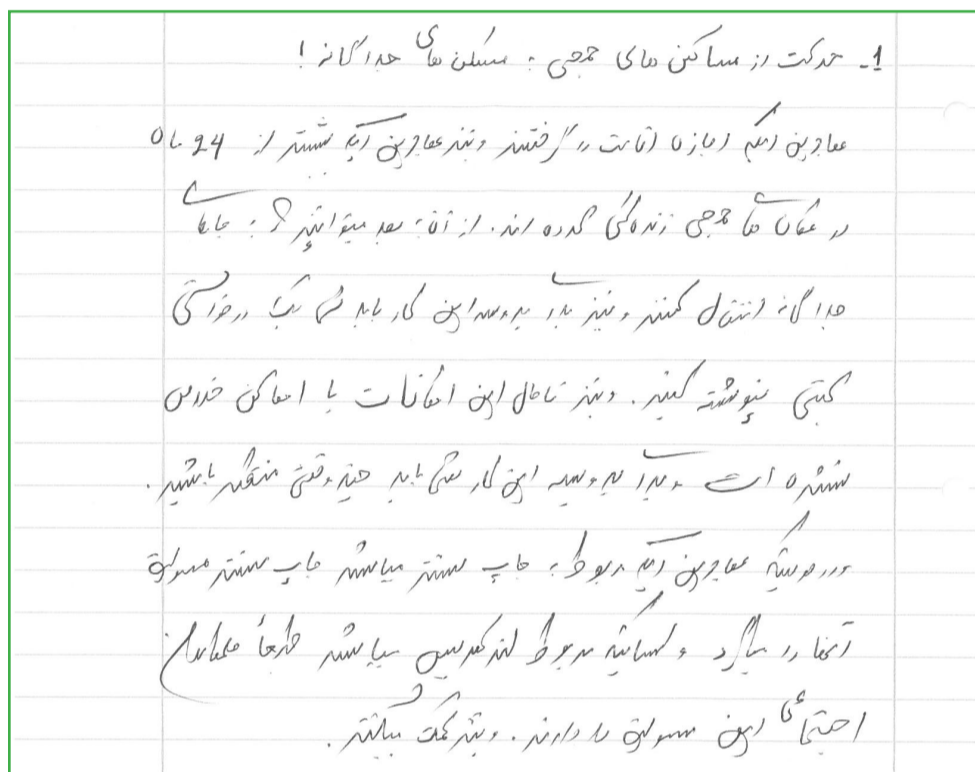 1- حرکت از مساکن های جمعی به مسکن های جداگانه!
مهاجرین ایکه اجازه اقامت را گرفتند ونیز مهاجرین ایکه بیشتر از 24 ماه
در مکان های جمعی زندگی کرده اند. از آن به بعد میتوانند به جاهای
جداگانه انتقال کنند ونیز این کار باید شما یک درخواستی
کتبی نوشته کنید. ونیز این امکانات با اماکن
است این کار شما باید چند وقتی منتظر باشید.
درصورتیکه مهاجرین ایکه مربوط به جاب سنتر میباشد جاب سنتر مسولیت
آنها را میگرد و کسانیکه مربوط لندکریس میباشد طبعاً
اجتماعی این مسولیت را دارند. ونیز کمک میکنند.